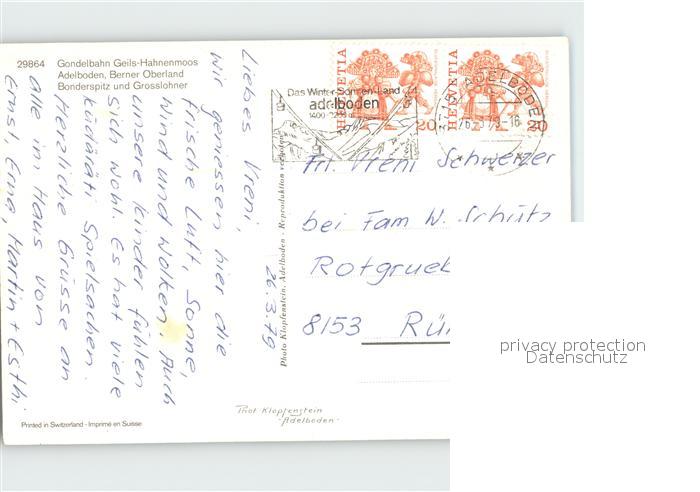 29864 Gondelbahn Geils-Hahnenmoos
Adelboden, Berner Oberland
Bonderspitz und Grosslohner
26.3.79
Liebes Vreni,
wir geniessen hier die
frische Luft, Sonne,
Wind und Wolken. Auch
unsere Kinder fühlen
sich wohl. Es hat viele
Spielsachen.
Herzliche Grüsse an
alle im Haus von
Ernst, Erna, Martin + Esth.
Printed in Switzerland - Imprimé en Suisse
Photo Klopfenstein, Adelboden - Reproduktion verboten
Phot Klopfenstein
-Adelboden-
HELVETIA
20
HELVETIA
20
Das Winter-Sonnen-Land
adelboden
ADELBODEN
Frl. Vreni Schweizer
bei Fam. W. Schütz
Rotgrueb
8153 Rüm
privacy protection
Datenschutz